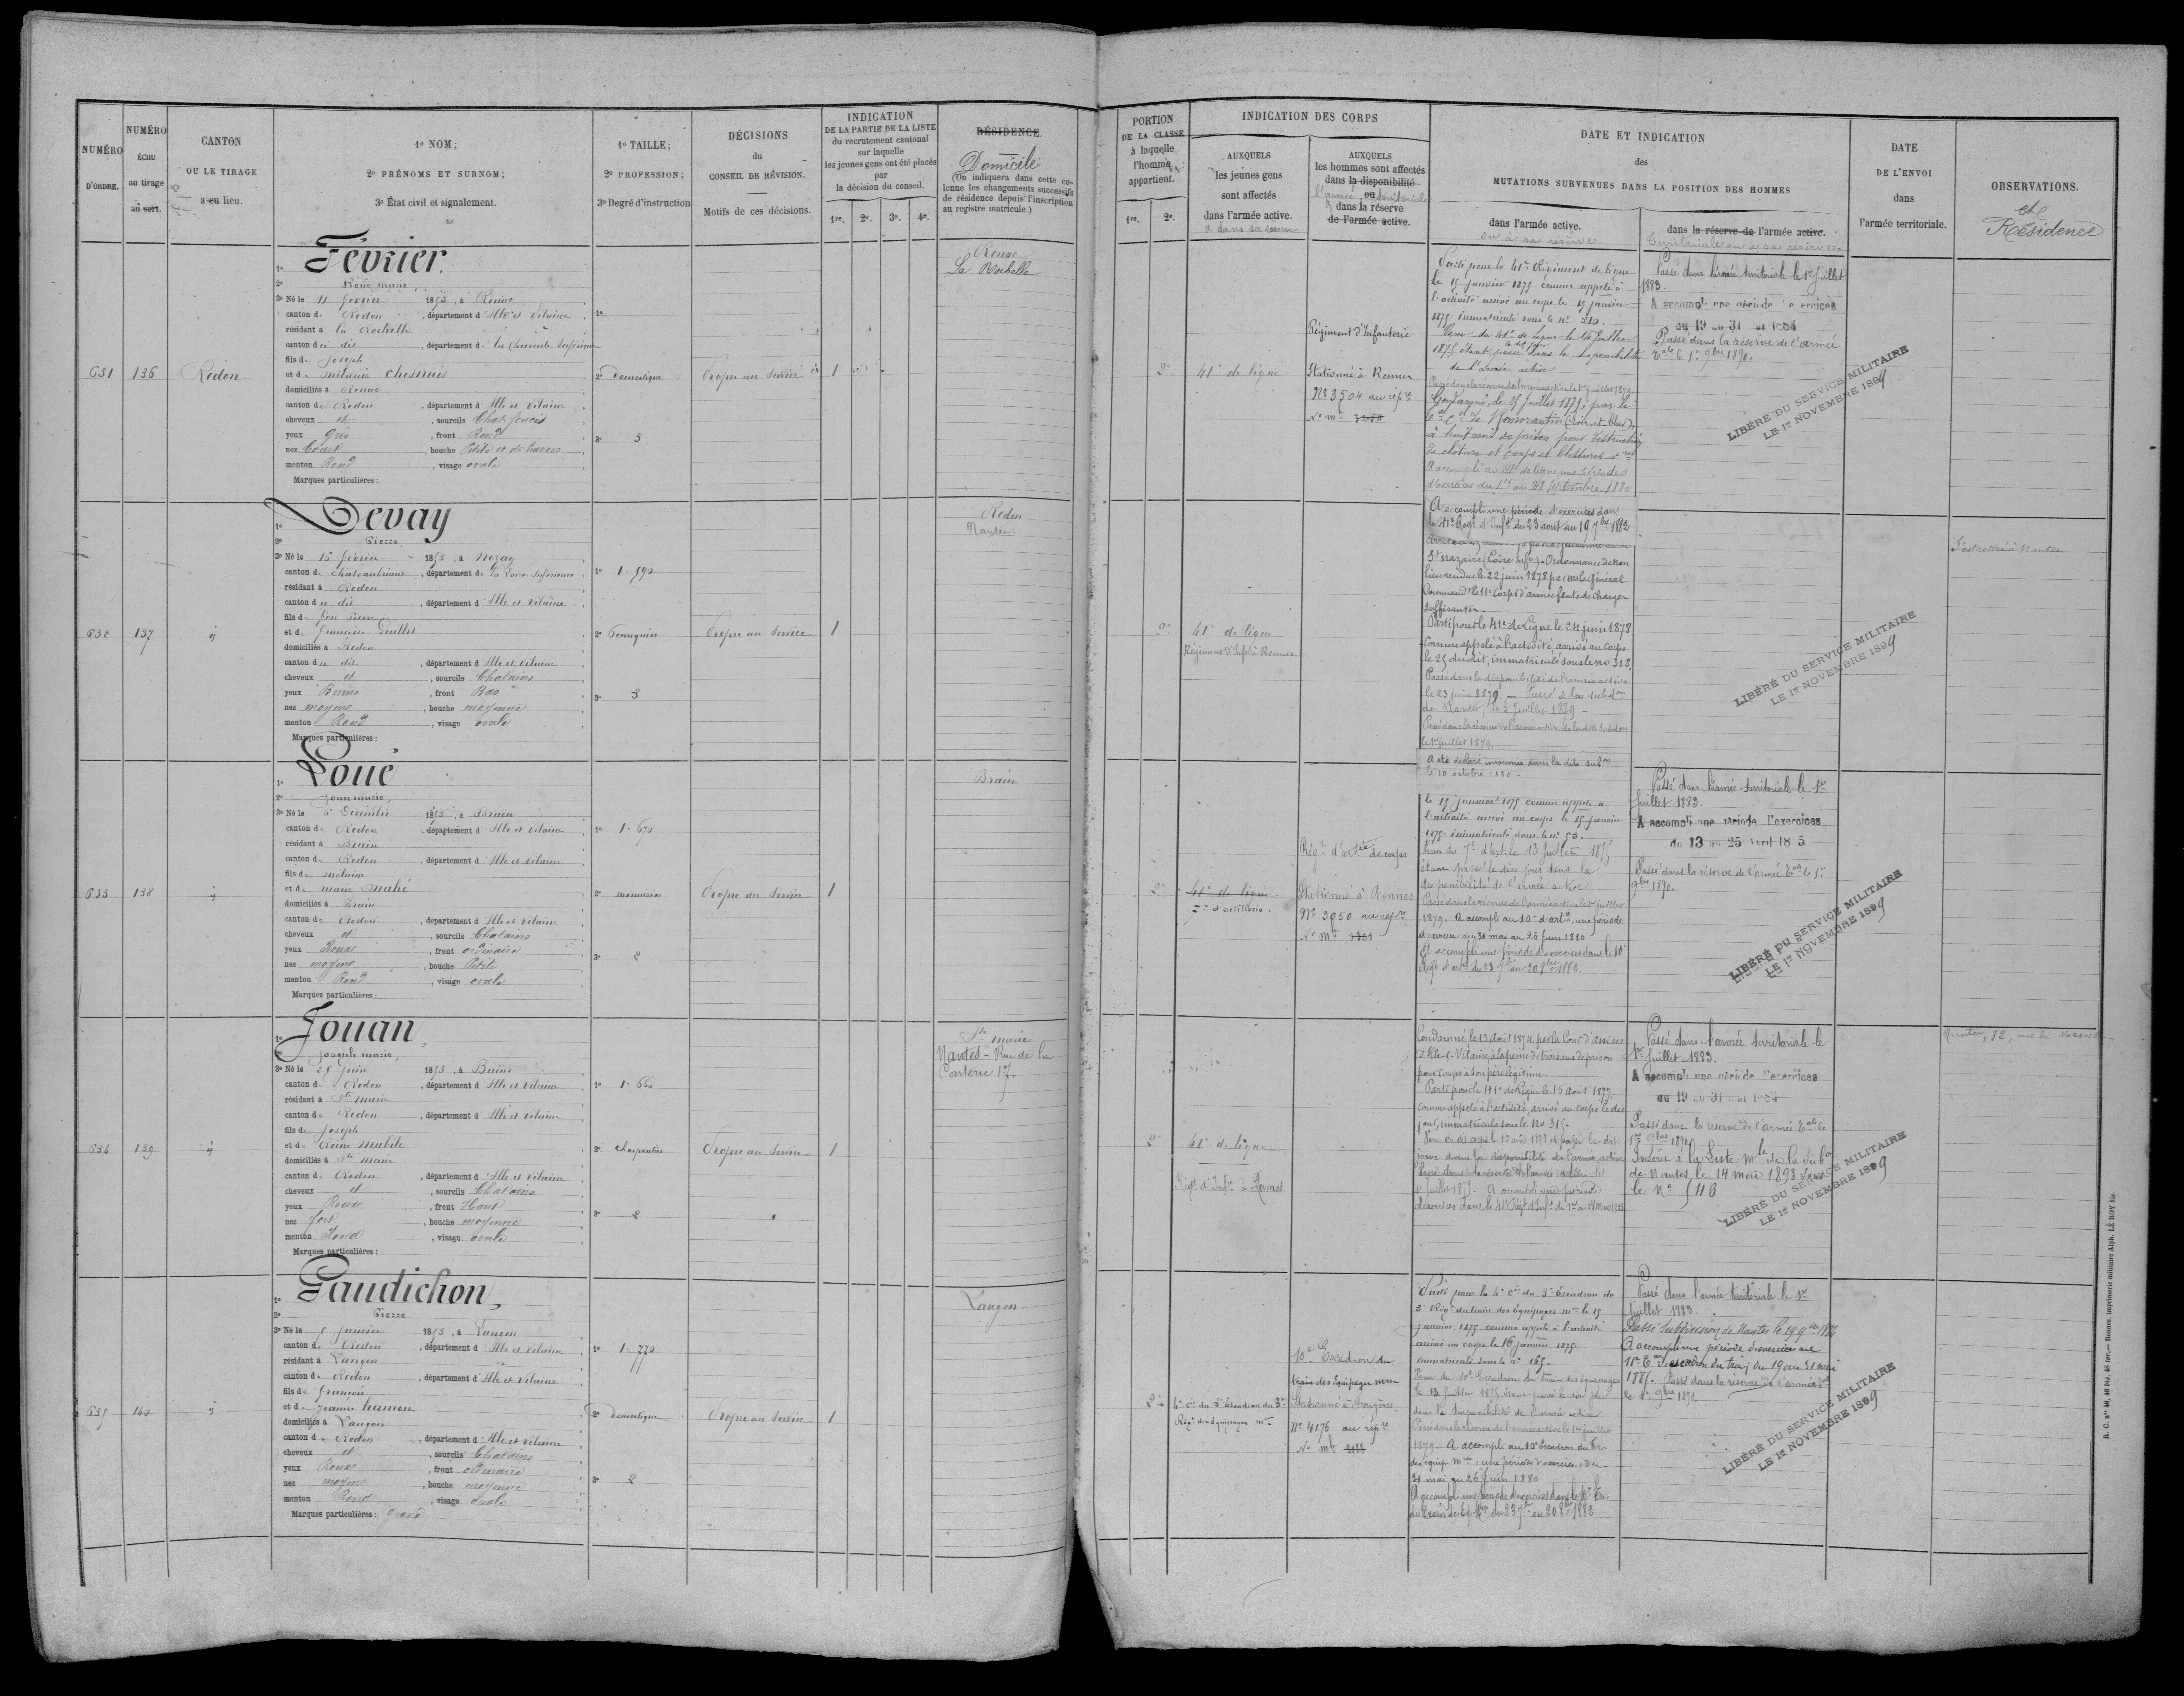 NUMÉRO D'ORDRE.
NUMÉRO ÉCHU au tirage au sort.
CANTON OU LE TIRAGE a eu lieu.
1º NOM;
2º PRÉNOMS ET SURNOM;
3º État civil et signalement.
1º TAILLE;
2º PROFESSION;
3º Degré d'instruction
DÉCISIONS du CONSEIL DE RÉVISION.
Motifs de ces décisions.
INDICATION DE LA PARTIE DE LA LISTE du recrutement cantonal sur laquelle les jeunes gens ont été placés par la décision du conseil.
1re. 2e. 3e. 4e.
RÉSIDENCE.
Domicile
(On indiquera dans cette colonne les changements successifs de résidence depuis l'inscription au registre matricule.)
PORTION DE LA CLASSE à laquelle l'homme appartient.
1re. 2e.
INDICATION DES CORPS
AUXQUELS les jeunes gens sont affectés dans l'armée active.
AUXQUELS les hommes sont affectés dans la disponibilité ou dans la réserve de l'armée active.
DATE ET INDICATION des MUTATIONS SURVENUES DANS LA POSITION DES HOMMES
dans l'armée active.
ou à sa réserve
dans la réserve de l'armée active.
territoriale ou à sa réserve
DATE DE L'ENVOI dans l'armée territoriale.
OBSERVATIONS.
et Résidence
631 136 Redon
1º Février.
2º René, marie,
3º Né le 11 février 1853, à Renac
canton de Redon, département d'Ille et Vilaine
résidant à la Rochelle
canton du dit, département de la Charente Inférieure
fils de Joseph
et de Mélanie Chesnais
domiciliés à Renac
canton de Redon, département d'Ille et Vilaine
cheveux et, sourcils Chat. foncés
yeux Gris, front Rond
nez Court, bouche Petite et de travers
menton Rond, visage ovale
Marques particulières:
2º domestique
3º 3
Propre au service 1
Renac
La Rochelle
2e 41e de ligne
Régiment d'Infanterie
Stationné à Rennes
Nº 3504 au rép.re
Parti pour le 41e Régiment de ligne
le 15 janvier 1875 comme appelé à
l'activité arrivé au corps le 15 janvier
1875 immatriculé sous le nº 210.
Venu du 41e de ligne le 14 Juillet
1875 étant passé dans la disponibilité
de l'armée active
Passé dans la réserve de l'armée active le 1er juillet 1879.
Condamné, le 25 Juillet 1879, par le
de Romorantin (Loir-et-Cher),
à huit mois de prison pour destruction
de clôture et coups et blessures
A accompli au 41e de ligne une période
d'exercices du 1er au 28 septembre 1880
Passé dans l'armée territoriale le 1er Juillet
1883.
A accompli une période d'exercices
du 19 au 31 mai 1884
Passé dans la réserve de l'armée
Tale le 1er 9bre 1890.
LIBÉRÉ DU SERVICE MILITAIRE
LE 1er NOVEMBRE 1899
632 137 ij
1º Devay
2º Pierre
3º Né le 15 février 1853, à Nozay
canton de Chateaubriant, département de la Loire Inférieure
résidant à Redon
canton du dit, département d'Ille et Vilaine
fils de feu Pierre
et de Françoise Guillet
domiciliés à Redon
canton du dit, département d'Ille et Vilaine
cheveux et, sourcils Chatains
yeux Bruns, front Bas
nez moyen, bouche moyenne
menton Rond, visage ovale
Marques particulières:
1º 1.590
3º 3
Propre au service 1
Redon
Nantes
2e 41e de ligne
Régiment d'Inf. à Rennes.
A accompli une période d'exercices dans
le 41e Régt d'Infie du 23 août au 19 7bre 1882
St Nazaire (Loire Infre). Ordonnance de non
lieu rendue le 22 juin 1878 par M. le Général
Command. le 11e Corps d'armée faute de charges
suffisantes.
Parti pour le 41e de Ligne le 24 juin 1878
comme appelé à l'activité, arrivé au corps
le 25 du dit, immatriculé sous le no 318.
Passé dans la disponibilité de l'armée active
le 23 juin 1879. — Passé à la subdon
de Nantes, le 3 Juillet 1879 —
Passé dans la réserve de l'armée active de la dite Subdon
le 1er juillet 1879.
A été déclaré insoumis dans la dite subon
le 10 octobre 1880 -
LIBÉRÉ DU SERVICE MILITAIRE
LE 1er NOVEMBRE 1899
633 138 ij
1º Loué
2º Jean marie,
3º Né le 6 Décembre 1853, à Brain
canton de Redon, département d'Ille et Vilaine
résidant à Brain
canton de Redon, département d'Ille et Vilaine
fils de Mélaine
et de marie Mahé
domiciliés à Brain
canton de Redon, département d'Ille et Vilaine
cheveux et, sourcils Chatains
yeux Roux, front ordinaire
nez moyen, bouche Petite
menton Rond, visage ovale
Marques particulières:
1º 1.670
2º menuisier
3º 2
Propre au service 1
Brain
2e 41e de ligne
7e d'artillerie.
Régt d'artie de corps
Stationné à Rennes
Nº 3050 au rép.re
le 15 janvier 1875 comme appelé à
l'activité arrivé au corps le 15 janvier
1875 immatriculé sous le nº 53.
Venu du 7e d'art. le 13 Juillet 1875
étant passé le dix jour dans la
disponibilité de l'armée active
Passé dans la réserve de l'armée active le 1er juillet
1879. A accompli au 10e d'artie une période
d'exercice du 30 mai au 26 Juin 1880
A accompli une période d'exercices dans le 10e
Régt d'artie du 23 7bre au 20 8bre 1882.
Passé dans l'armée territoriale le 1er
Juillet 1883.
A accompli une période d'exercices
du 13 au 25 avril 1885
Passé dans la réserve de l'armée Tale le 1er
9bre 1890.
LIBÉRÉ DU SERVICE MILITAIRE
LE 1er NOVEMBRE 1899
634 139 ij
1º Jouan,
2º Joseph marie,
3º Né le 25 Juin 1853, à Bains
canton de Redon, département d'Ille et Vilaine
résidant à Ste marie
canton de Redon, département d'Ille et Vilaine
fils de Joseph
et de Reine Mabile
domiciliés à Ste marie
canton de Redon, département d'Ille et Vilaine
cheveux et, sourcils Chatains
yeux Roux, front Haut
nez fort, bouche moyenne
menton Rond, visage ovale
Marques particulières:
1º 1.660
2º charpentier
3º 2
Propre au service 1
Ste marie
Nantes - Rue de la
2e 41e de ligne
Régt d'Infie à Rennes
Condamné le 13 Août 1874 par la Cour d'assises
d'Ille-&-Vilaine à la peine de trois ans de prison
pour coups à son père légitime.
Parti pour le 41e de Ligne le 15 août 1877
comme appelé à l'activité, arrivé au corps le dit
jour, immatriculé sous le No 315.
A accompli une période
d'exercices dans le 41e Régt d'Infie
Passé dans l'armée territoriale le
1er Juillet 1883.
A accompli une période d'exercices
du 19 au 31 mai 1884
Passé dans la réserve de l'armée Tale le
1er 9bre 1890
Inscrit à la Liste mle de la Subon
de Nantes, le 14 mai 1893 sous
le Nº 546
LIBÉRÉ DU SERVICE MILITAIRE
LE 1er NOVEMBRE 1899
635 140 ij
1º Gaudichon,
2º Pierre
3º Né le 5 Janvier 1853, à Langon
canton de Redon, département d'Ille et Vilaine
résidant à Langon
canton de Redon, département d'Ille et Vilaine
fils de François
et de Jeanne hamon
domiciliés à Langon
canton de Redon, département d'Ille et Vilaine
cheveux et, sourcils Chatains
yeux Roux, front ordinaire
nez moyen, bouche moyenne
menton Rond, visage ovale
Marques particulières: gravé
1º 1.770
2º domestique
3º 2
Propre au service 1
Langon.
2e 4e Cie du 3e Escadron du 3e
Régt des Equipages mres
10e Escadron du
train des Equipages mres
Stationné à Fougères
Nº 4176 au rép.re
Parti pour la 4e Cie du 3e Escadron du
3e Régt du train des Equipages mres le 15
janvier 1875 comme appelé à l'activité
arrivé au corps le 16 janvier 1875
immatriculé sous le nº 165.
Venu du 10e Escadron du train des équipages
dans la disponibilité de l'armée active
Passé dans la réserve de l'armée active le 1er juillet
1879. A accompli au 10e Escadron du Tr.
des équip. mres une période d'exercice du
31 mai au 26 Juin 1880
A accompli une période d'exercices dans le 10e Er.
du Train des Eq. Mres du 23 7bre au 20 8bre 1882
Passé dans l'armée territoriale le 1er
Juillet 1883.
Passé Subdivision de Nantes le 19 9bre 1884
A accompli une période d'exercices au
11e Eon escadron du train du 19 au 31 mai
1885. Passé dans la réserve de l'armée Tale
le 1er 9bre 1890.
LIBÉRÉ DU SERVICE MILITAIRE
LE 1er NOVEMBRE 1899
R. C. nos 48, 48 bis, 48 ter. — Rennes, imprimerie militaire Alph. LE ROY fils